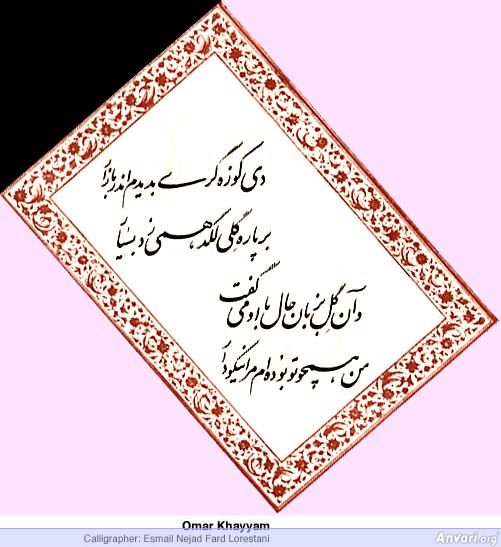 دی کوزه گرے بدیدم اندر بازار
بر پاره گلی لگد همی زد بسیار
وآن گل بزبان حال با او می گفت
من همچو تو بوده ام مرا نیکودار
Omar Khayyam
Calligrapher: Esmail Nejad Fard Lorestani
Anvari.org